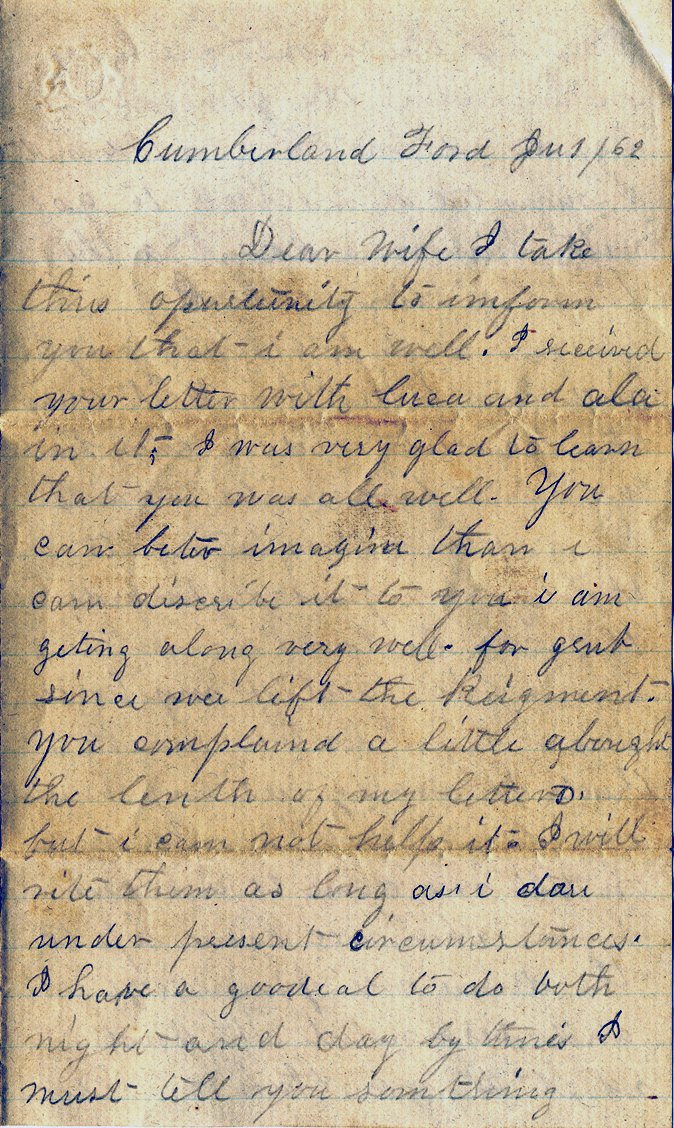 Cumberland Ford Ju 1/62
Dear Wife I take
this opurtunity to imform
you that i am well. I received
your letter with luca and ala
in it, I was very glad to learn
that you was all well. You
can beter imagine than i
cam discribe it to you i am
geting along very well. for
since wee lift the Reigment.
You complaind a little abought
the lenth of my letters.
but i cam not help it. I will
rite them as long as i dare
under present circumstances.
I have a goodeal to do both
night and day by times I
must tell you somthing